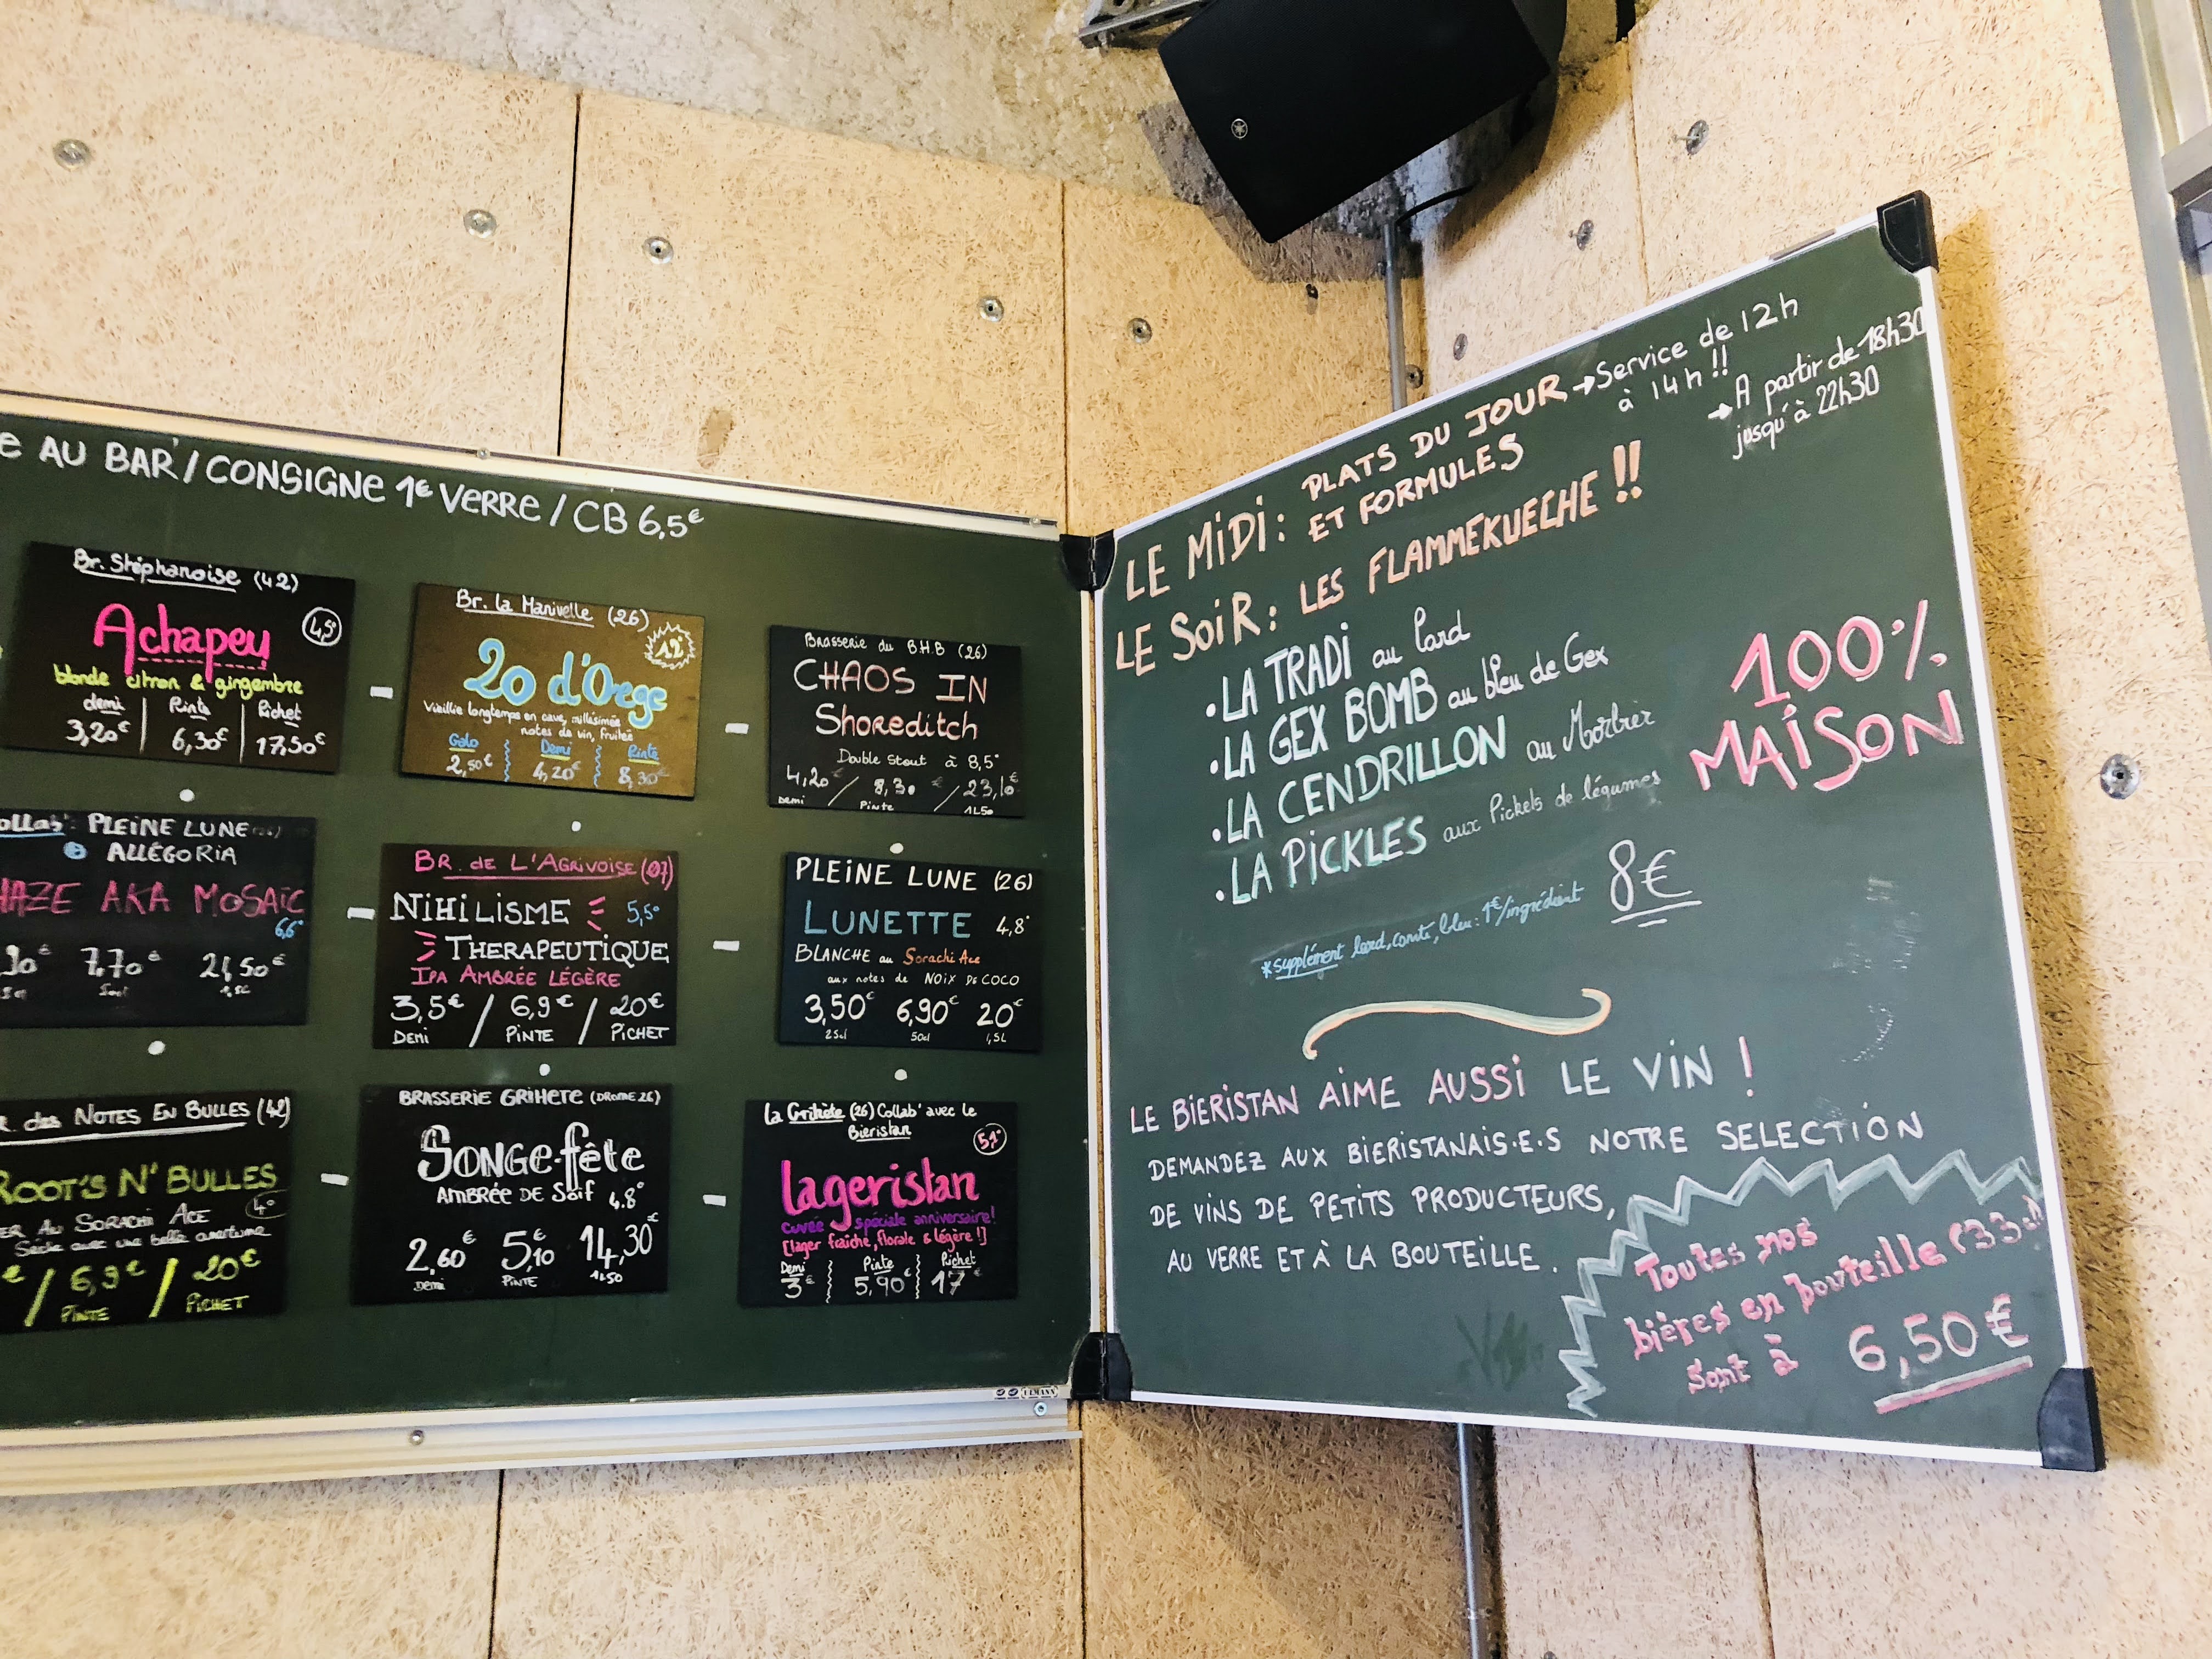 AU BAR / CONSIGNE 1€ VERRE / CB 6,5€
Br. Stéphanoise (42)
Achapeu
4,5°
blonde citron & gingembre
demi Pinte Pichet
3,20€ 6,30€ 17,50€
Br. la Manivelle (26)
12°
20 d'Orege
Vieillie longtemps en cave, millésimée
notes de vin, fruitée
Galo Demi Pinte
2,50€ 4,20€ 8,30€
Brasserie du B.H.B (26)
CHAOS IN
Shoreditch
Double Stout à 8,5°
4,20 / 8,30 € / 23,10€
Demi Pinte 1L50
PLEINE LUNE
ALLÉGORIA
HAZE AKA MOSAÏC
6,6°
7,70€ 21,50€
BR. de L'AGRIVOISE (07)
NIHILISME 5,5°
THERAPEUTIQUE
IPA AMBRÉE LÉGÈRE
3,5€ / 6,9€ / 20€
DEMI PINTE PICHET
PLEINE LUNE (26)
LUNETTE 4,8°
BLANCHE au Sorachi Ace
aux notes de NOIX DE COCO
3,50€ 6,90€ 20€
25cl 50cl 1,5L
des NOTES EN BULLES (42)
ROOT'S N' BULLES
4°
AU SORACHI ACE
Sèche avec une belle amertume
€ / 6,9€ / 20€
PINTE PICHET
BRASSERIE GRIHETE (DROME 26)
SONGE-fête
AMBRÉE DE Soif 4.8°
2,60€ 5,10€ 14,30€
Demi PINTE 1L50
la Grihète (26) Collab' avec le
Bieristan
5,1°
lageristan
Cuvée spéciale anniversaire!
[lager fraîche, florale & légère!]
Demi Pinte Pichet
3€ 5,90€ 17€
LE MiDi: PLATS DU JOUR → Service de 12h
ET FORMULES à 14h !!
→ A partir de 18h30
jusqu'à 22h30
LE SoiR: LES FLAMMEKUECHE !!
• LA TRADi au lard
• LA GEX BOMB au bleu de Gex
• LA CENDRILLON au Morbier
• LA PiCKLES aux Pickels de légumes
100%
MAiSON
8€
*supplément lard, comté, bleu: 1€/ingrédient
LE BiERISTAN AiME AUSSi LE ViN !
DEMANDEZ AUX BiERISTANAIS·E·S NOTRE SELECTiON
DE ViNS DE PETiTS PRODUCTEURS,
AU VERRE ET À LA BOUTEiLLE.
Toutes nos
bières en bouteille (33cl)
sont à 6,50€
ULMANN